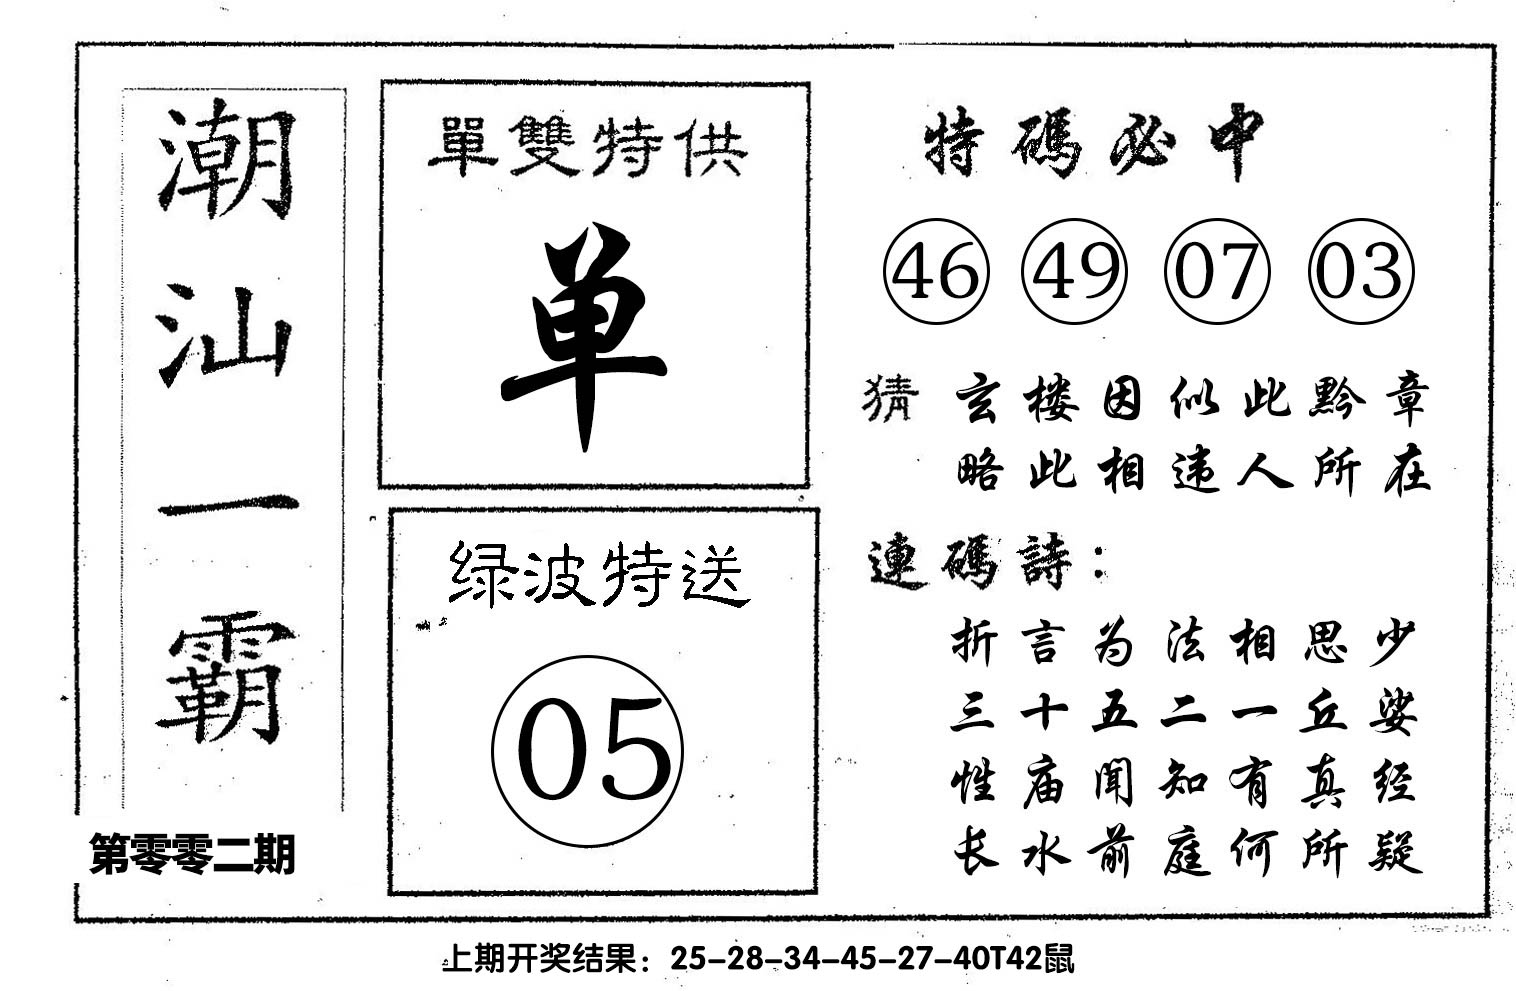 潮汕一霸
第零零二期
單雙特供
单
绿波特送
05
特碼必中
46 49 07 03
猜 玄楼因似此黔章
略此相违人所在
連碼詩：
折言为法相思少
三十五二一丘娑
性庙闻知有真经
长水前庭何所疑
上期开奖结果：25-28-34-45-27-40T42鼠